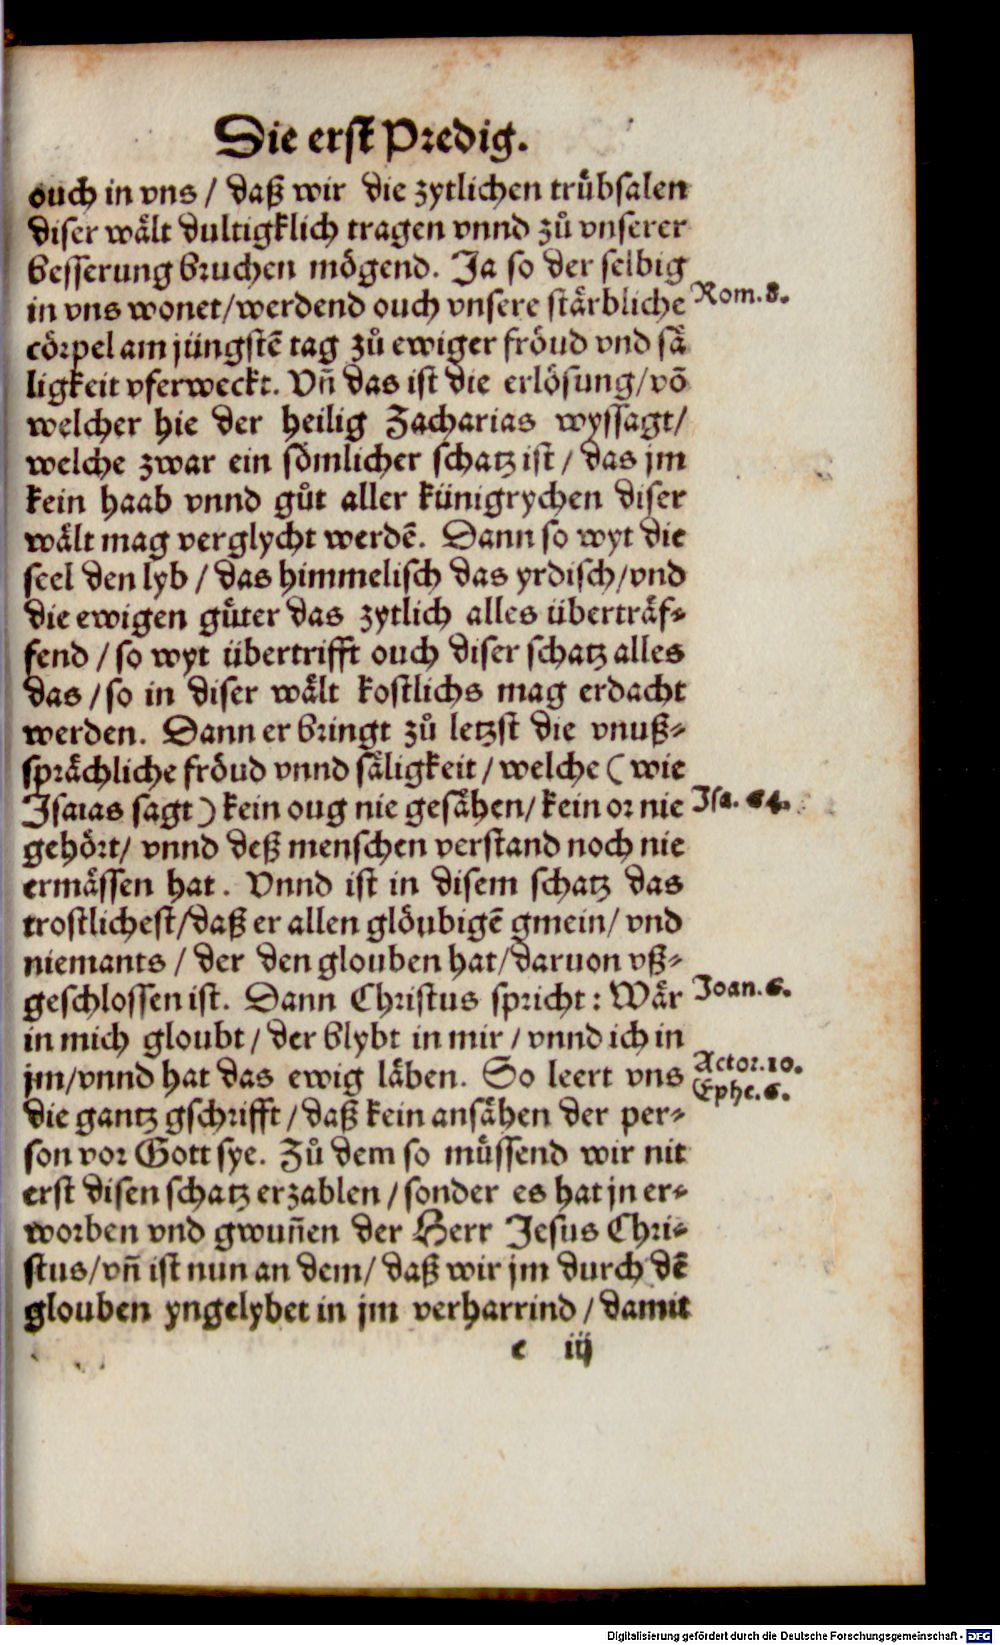 Die erst Predig.
ouch in vns / daß wir die zytlichen trübsalen
diser wält dultigklich tragen vnnd zů vnserer
besserung bruchen mögend. Ja so der selbig
in vns wonet/werdend ouch vnsere stärbliche
Rom.8.
cörpel am jüngstẽ tag zů ewiger fröud vnd sä
ligkeit vferweckt. Vñ das ist die erlösung/võ
welcher hie der heilig Zacharias wyssagt/
welche zwar ein sömlicher schatz ist / das jm
kein haab vnnd gůt aller künigrychen diser
wält mag verglycht werdẽ. Dann so wyt die
seel den lyb / das himmelisch das yrdisch/vnd
die ewigen güter das zytlich alles überträf-
fend / so wyt übertrifft ouch diser schatz alles
das / so in diser wält kostlichs mag erdacht
werden. Dann er bringt zů letzst die vnuß-
sprächliche fröud vnnd säligkeit / welche ( wie
Isaias sagt ) kein oug nie gesähen/ kein or nie
Isa. 64.
gehört/ vnnd deß menschen verstand noch nie
ermässen hat. Vnnd ist in disem schatz das
trostlichest/daß er allen glöubigẽ gmein/ vnd
niemants / der den glouben hat/daruon vß-
geschlossen ist. Dann Christus spricht: Wär
Joan.6.
in mich gloubt / der blybt in mir / vnnd ich in
jm/vnnd hat das ewig läben. So leert vns
Actor.10.
Ephe.6.
die gantz gschrifft / daß kein ansähen der per-
son vor Gott sye. Zů dem so müssend wir nit
erst disen schatz erzablen / sonder es hat jn er-
worben vnd gwuñen der Herr Jesus Chri-
stus/vñ ist nun an dem/ daß wir jm durch dẽ
glouben yngelybet in jm verharrind / damit
c iij
Digitalisierung gefördert durch die Deutsche Forschungsgemeinschaft - DFG